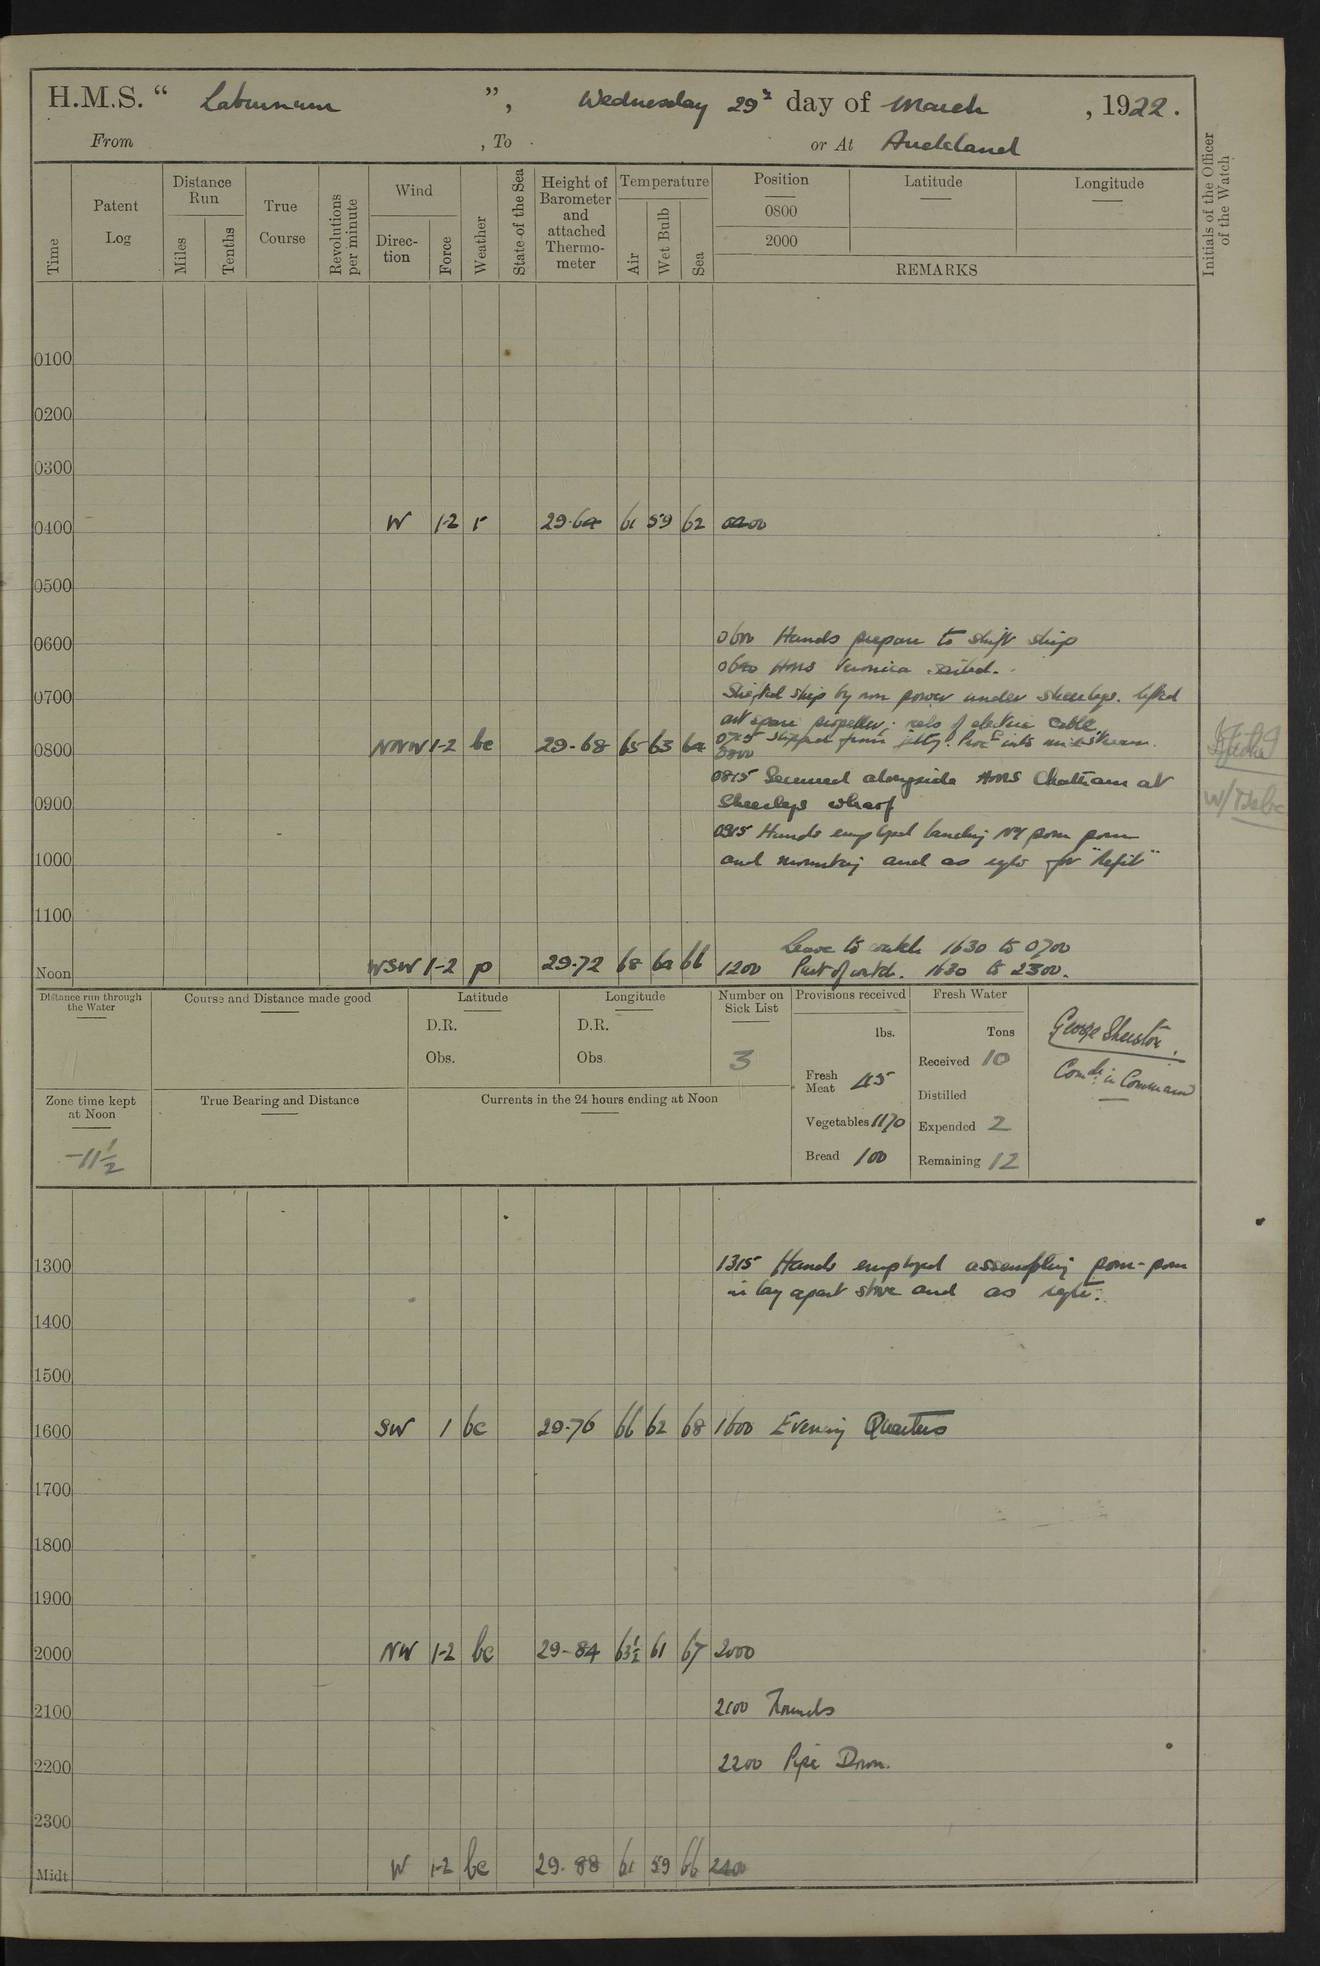 H.M.S. “ Laburnum ”, Wednesday 29th day of March, 1922.
From , To or At Auckland
Time
Patent Log
Distance Run
Miles
Tenths
True Course
Revolutions per minute
Wind
Direction
Force
Weather
State of the Sea
Height of Barometer and attached Thermometer
Temperature
Air
Wet Bulb
Sea
Position
0800
2000
Latitude
Longitude
REMARKS
Initials of the Officer of the Watch
0100
0200
0300
0400 W 1-2 r 29.64 61 59 62 0400
0500
0600 0600 Hands prepare to shift ship
0640 HMS Veronica sailed.
0700 Shifted ship by own power under sheerlegs. lifted
out spare propeller. reels of electric cable.
0745 Slipped from jetty. Proc into midstream.
0800 NNW 1-2 bc 29-68 65 63 64 0800
0815 Secured alongside HMS Chatham at
0900 Sheerlegs wharf
0915 Hands employed landing pom pom
1000 and mounting and as reqte for "Refit"
1100
Leave to watch 1630 to 0700
Noon WSW 1-2 p 29.72 68 64 66 1200 Part of watch. 1630 to 2300.
Distance run through the Water
Course and Distance made good
Latitude
D.R.
Obs.
Longitude
D.R.
Obs
Number on Sick List
3
Provisions received
lbs.
Fresh Meat 45
Vegetables 1170
Bread 100
Fresh Water
Tons
Received 10
Distilled
Expended 2
Remaining 12
George Sherston.
Comdr in Command
Zone time kept at Noon
-11½
True Bearing and Distance
Currents in the 24 hours ending at Noon
1300 1315 Hands employed assembling pom-pom
in lay apart store and as reqte.
1400
1500
1600 SW 1 bc 29.76 66 62 68 1600 Evening Quarters
1700
1800
1900
2000 NW 1-2 bc 29-84 63½ 61 67 2000
2100 2100 Rounds
2200 2200 Pipe Down.
2300
Midt W 1-2 bc 29.88 61 59 66 2400